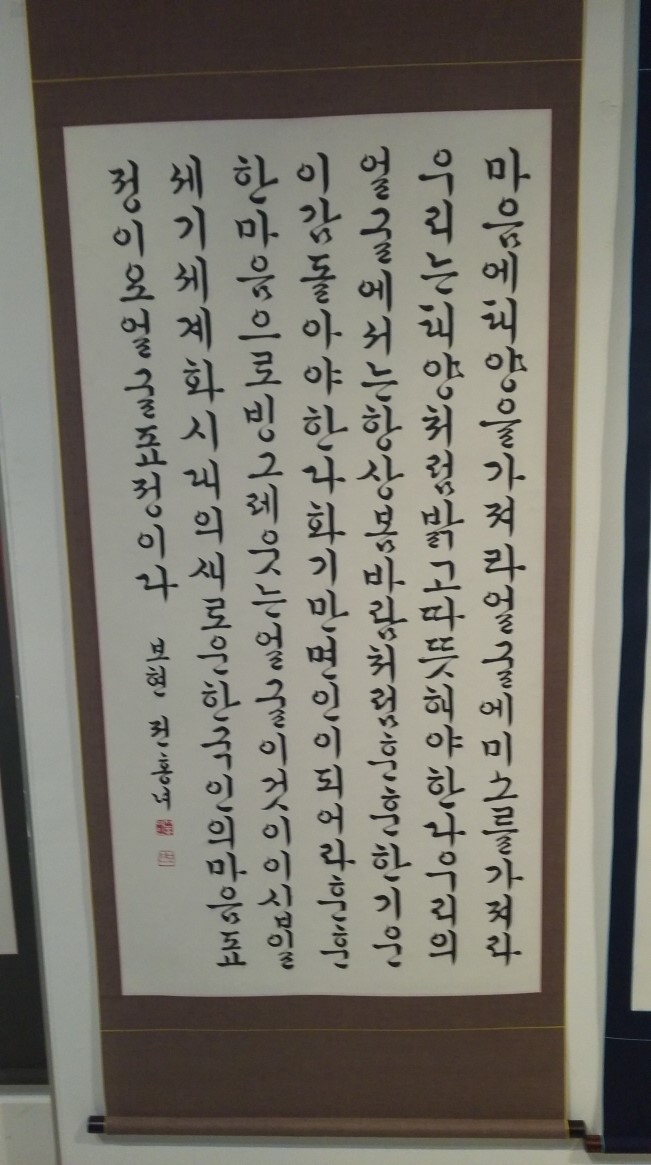 마음에태양을가져라얼굴에미소를가져라
우리는태양처럼밝고따뜻해야한다우리의
얼굴에서는항상봄바람처럼훈훈한기운
이감돌아야한다화기만면인이되어라훈훈
한마음으로빙그레웃는얼굴이것이이십일
세기세계화시대의새로운한국인의마음표
정이오얼굴표정이라
보현 전홍녀